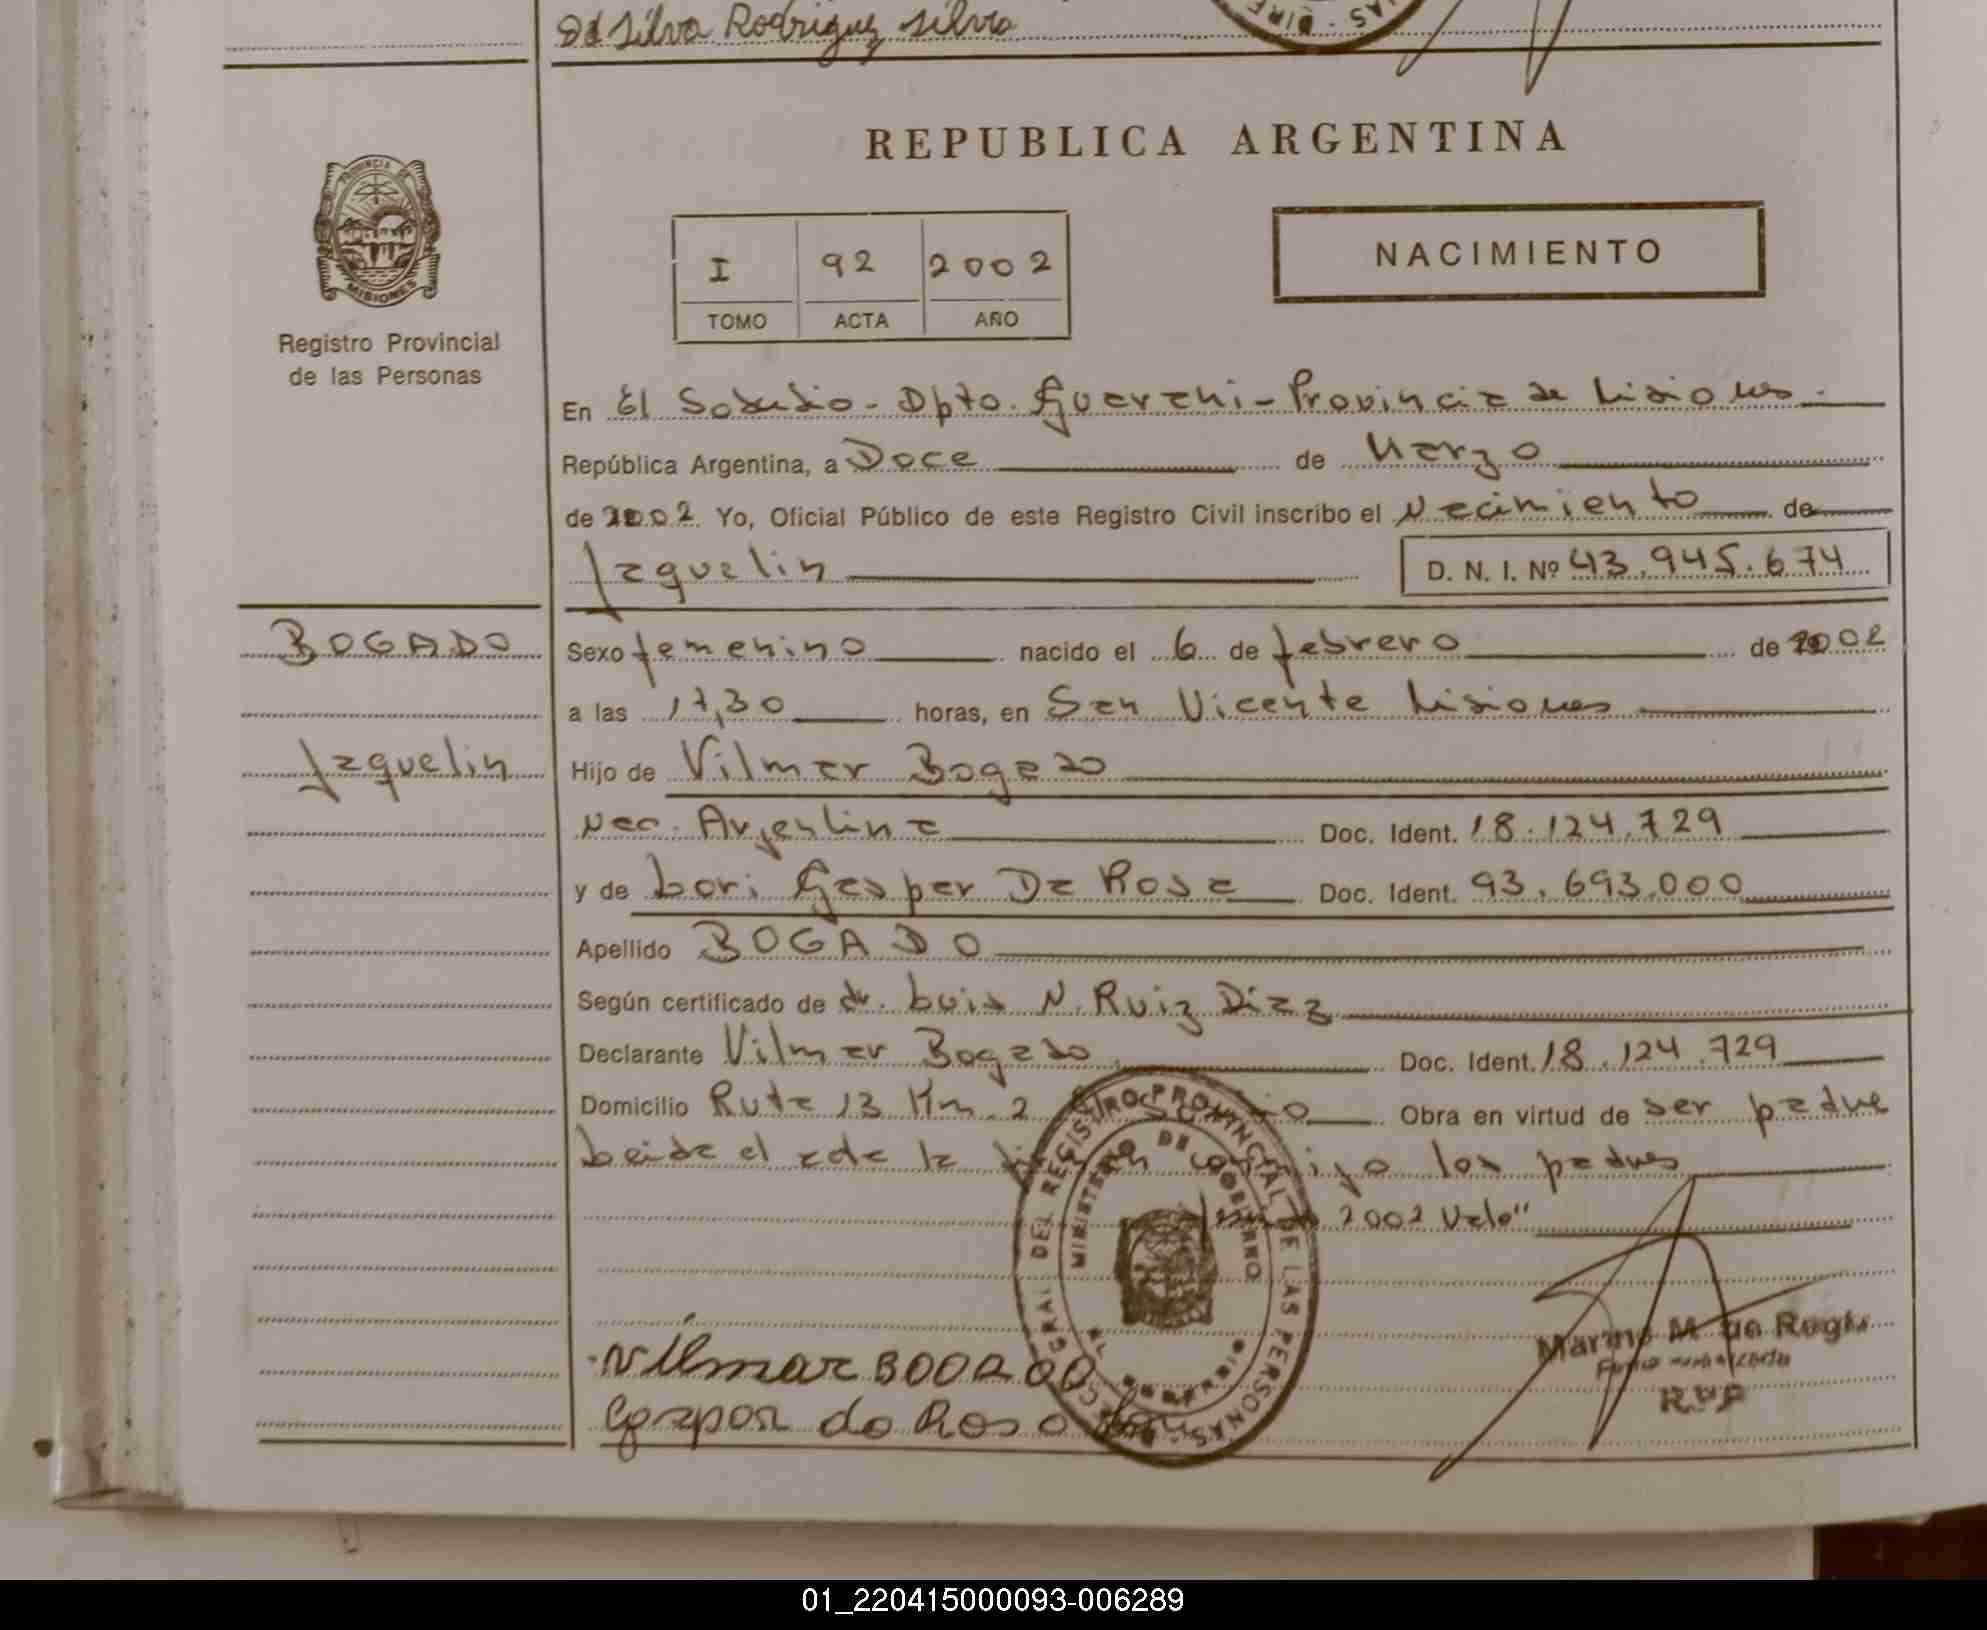 Silva Rodriguez Silvia
REPUBLICA ARGENTINA
PROVINCIA DE
MISIONES
Registro Provincial
de las Personas
I 92 2002
TOMO ACTA AÑO
NACIMIENTO
En El Soberbio - Dpto. Guarani - Provincia de Misiones.
República Argentina, a Doce de Marzo
de 2002. Yo, Oficial Público de este Registro Civil inscribo el Nacimiento de
Jaquelin D. N. I. Nº 43.945.674
BOGADO
Jaquelin
Sexo femenino nacido el 6 de febrero de 2002
a las 17,30 horas, en San Vicente Misiones
Hijo de Vilmar Bogado
Nac. Argentina Doc. Ident. 18.124.729
y de Lori Gaspar Da Rosa Doc. Ident. 93.693.000
Apellido BOGADO
Según certificado de dr. Luis N. Ruiz Diaz
Declarante Vilmar Bogado Doc. Ident. 18.124.729
Domicilio Ruta 13 Km. 2 Obra en virtud de ser padre
Leida el acta la los padres
2002 Vale"
GRAL DEL REGISTRO PROVINCIAL DE LAS PERSONAS
MINISTERIO DE GOBIERNO
Vilmar BOGADO
Gaspar da Rosa
Marino M. de
R P P
01_220415000093-006289